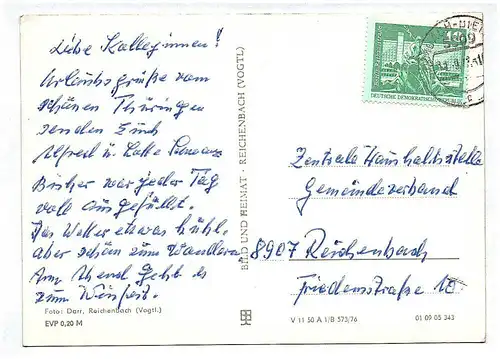 Liebe Kolleginnen!
Urlaubsgrüße vom
schönen Thüringen
senden Euch
Alfred u. Lotte
Bisher war jeder Tag
voll ausgefüllt.
Das Wetter etwas kühl,
aber schön zum Wandern
Am Abend geht es
zum Weinfest.
Foto: Darr, Reichenbach (Vogtl.)
EVP 0,20 M
BILD UND HEIMAT · REICHENBACH (VOGTL)
V 11 50 A 1/B 573/76
01 09 05 343
DEUTSCHE DEMOKRATISCHE
Zentrale Haushaltsstelle
Gemeindeverband
8907 Reichenbach
Friedensstraße 10.